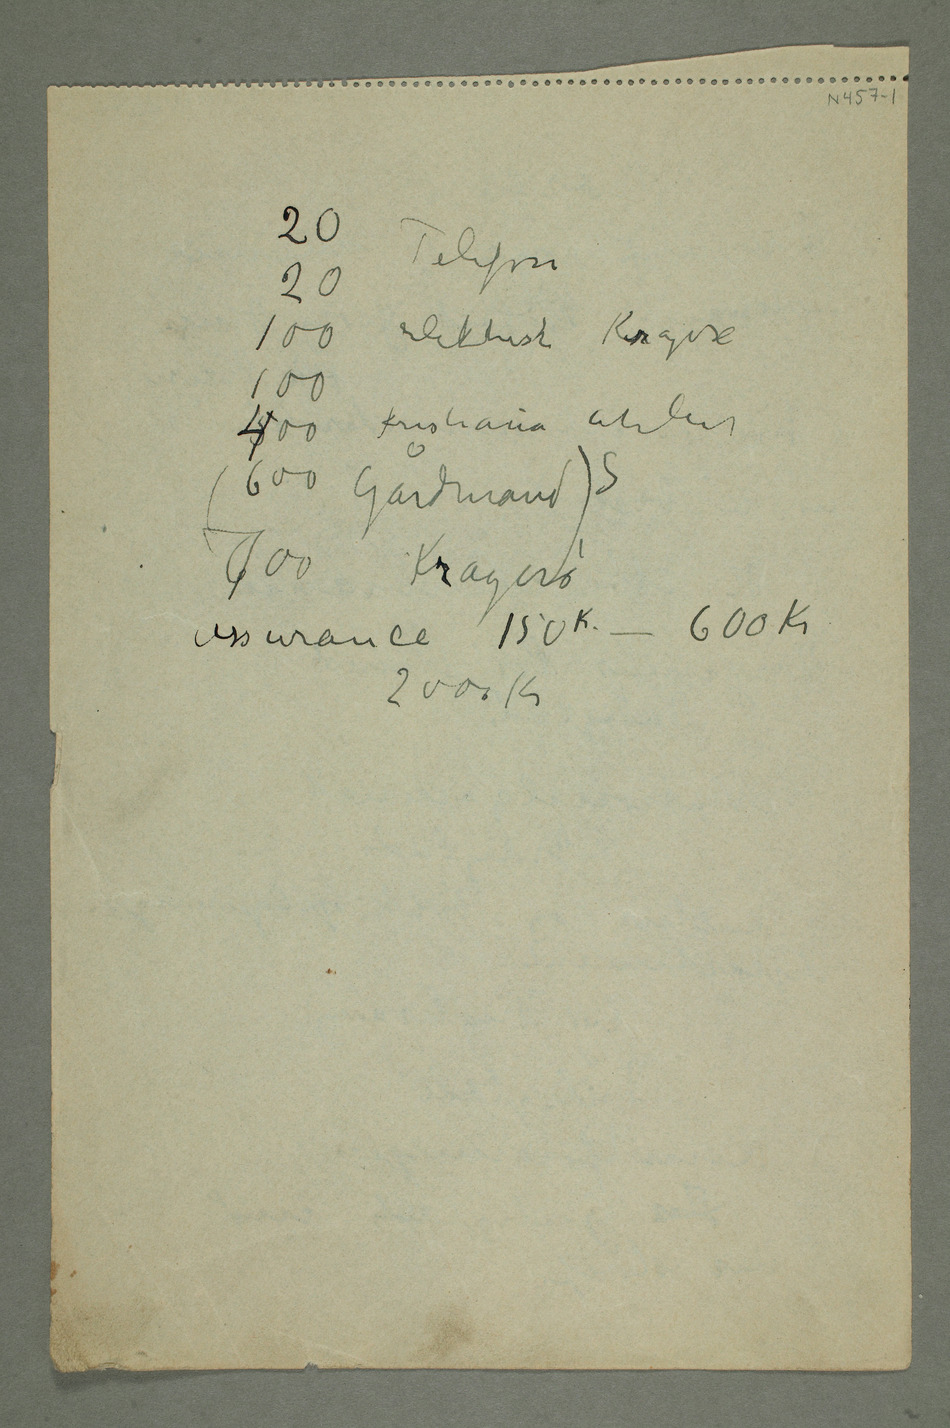 N457-1
20 Telefon
20
100 elektrisk Kragerø
100
400 Kristiania atelier
(600 Gårdmand) S
700 Kragerö
assurance 150 K. — 600 Kr
2000 Kr